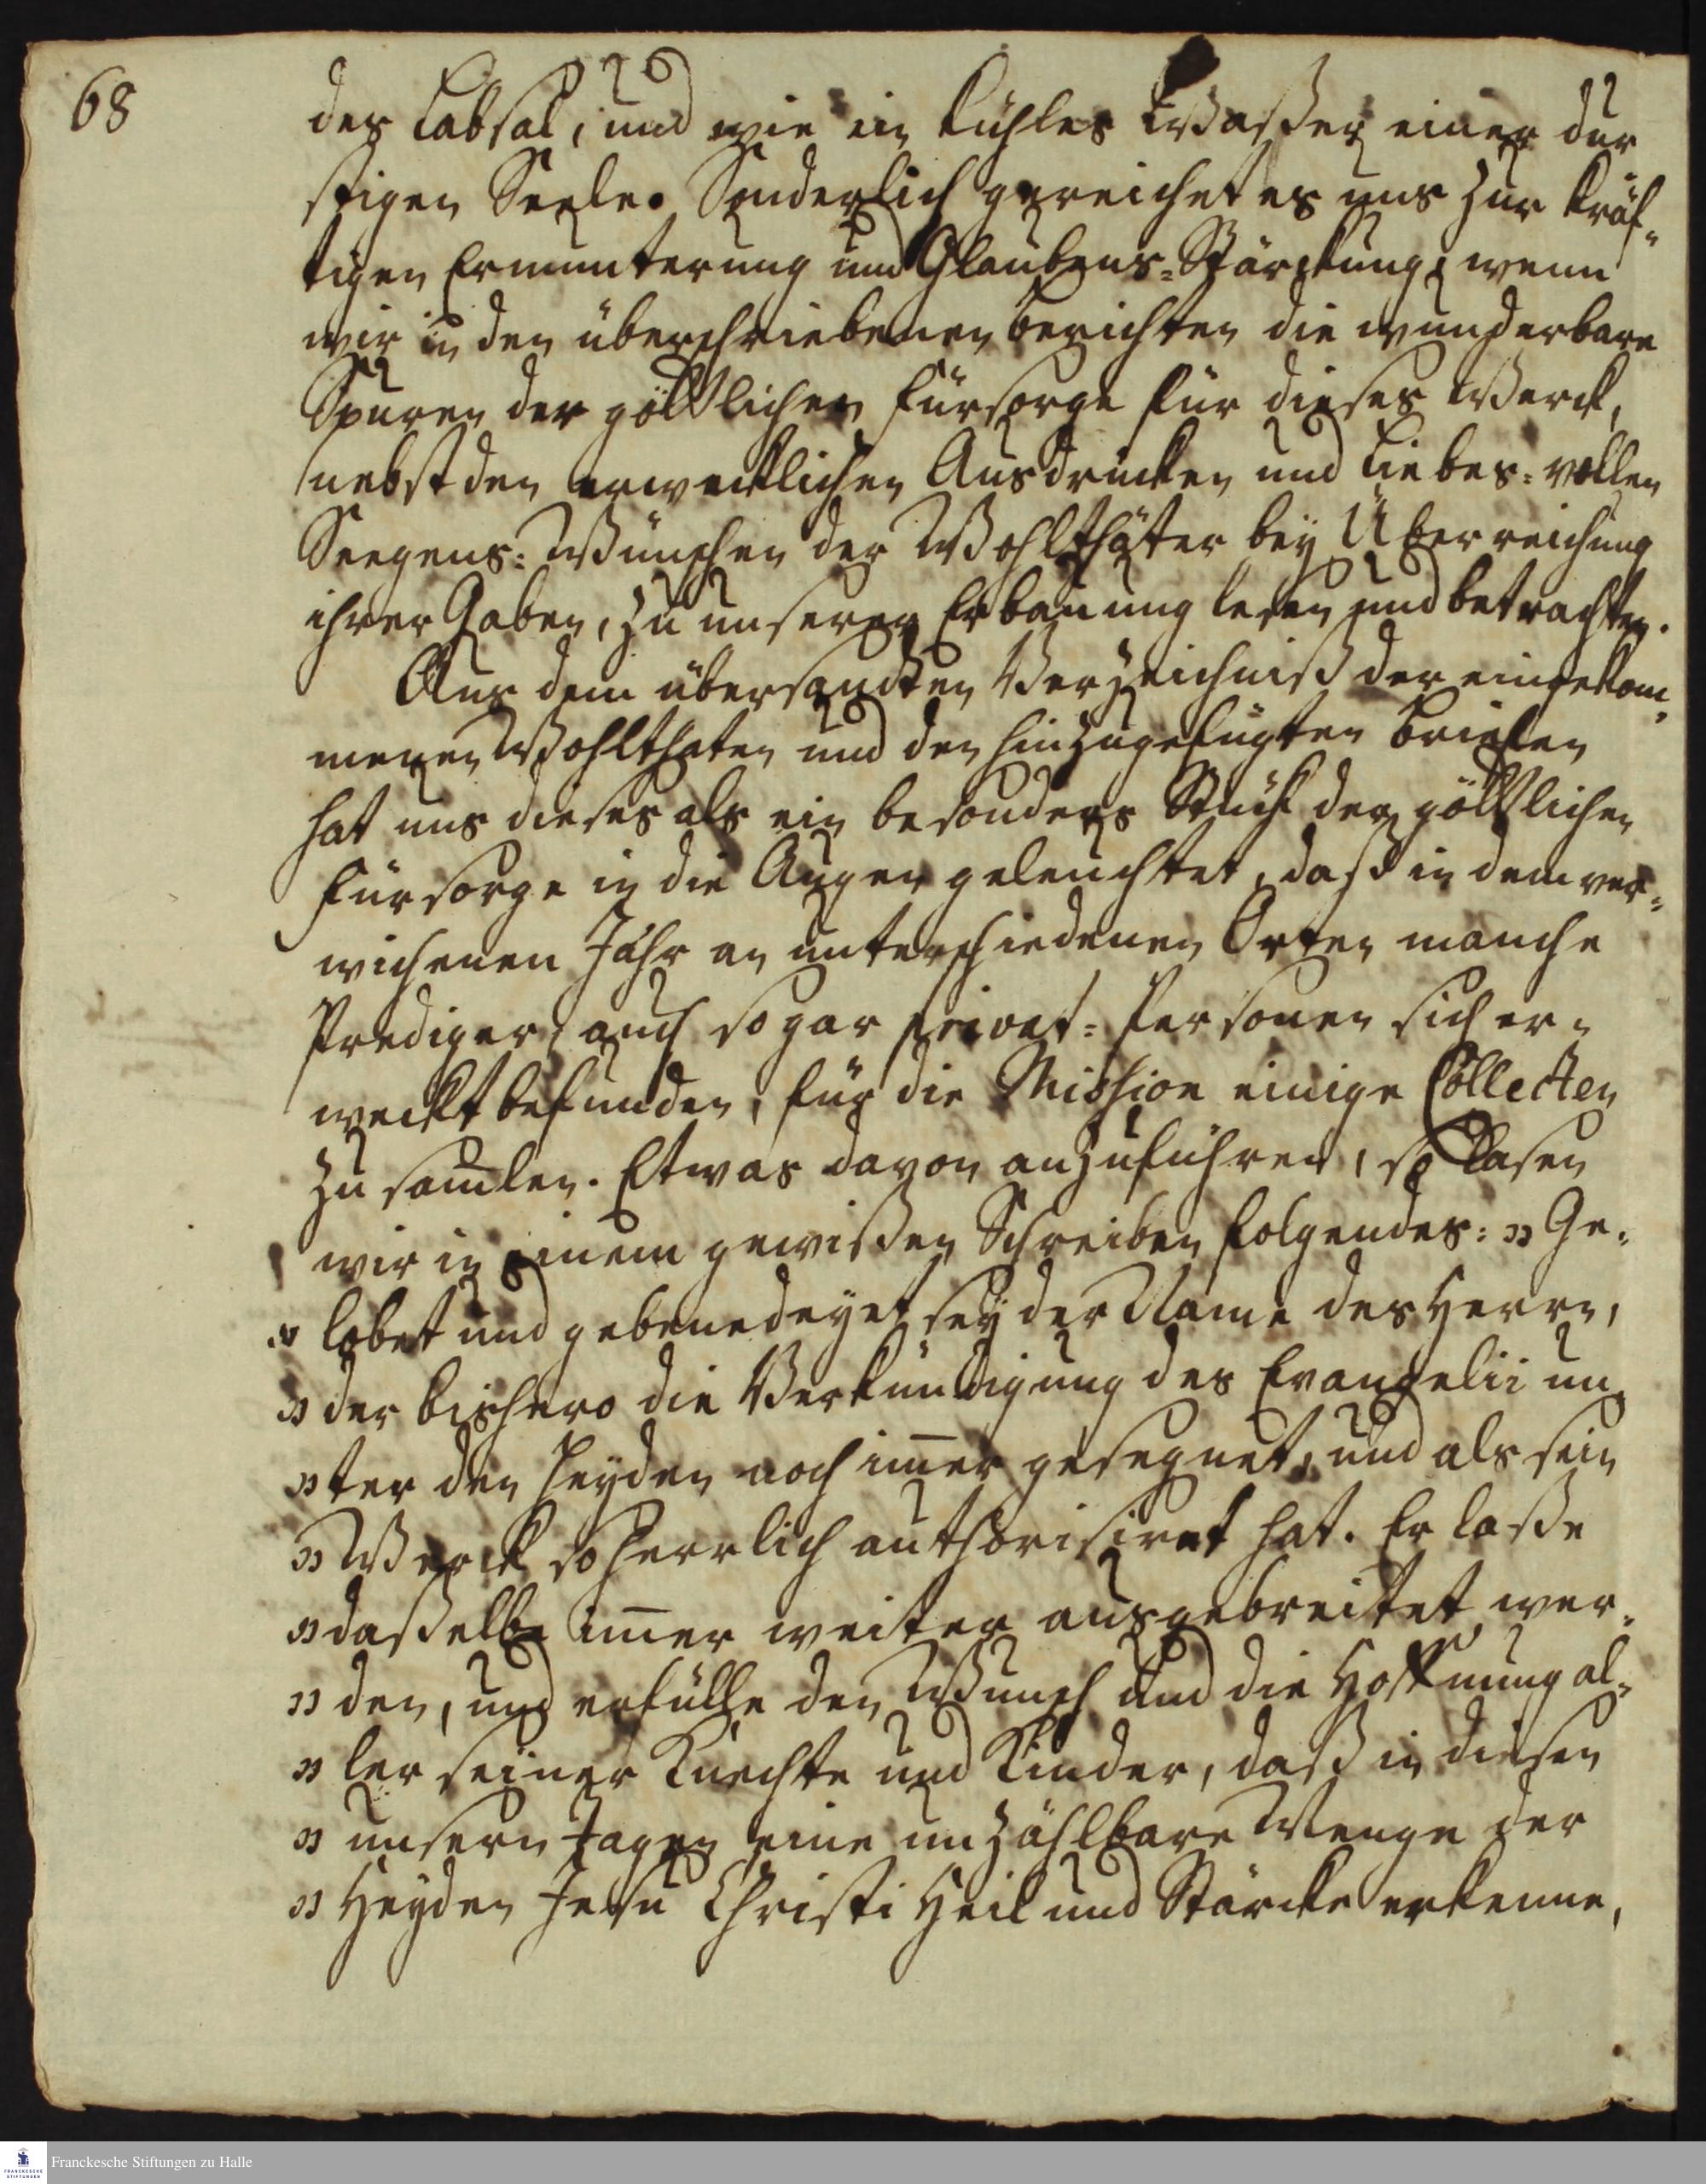 68
des Labsal, und wie ein kühles Waßer einer dur
stigen Seele. Sonderlich gereichet es uns zur kräf-
tigen Ermunterung und Glaubens-Stärckung, wenn
wir in den überschriebenen Berichten die wunderbare
Spuren der göttlichen Fürsorge für dieses Werck,
nebst den erwecklichen Ausdrücken und Liebes-vollen
Seegens-Wünschen der Wohlthäter bey Überreichung
ihrer Gaben, zu unserer Erbauung lesen und betrachten.
Aus dem übersandten Verzeichniß der eingekom-
menen Wohlthaten und den hinzugefügten Briefen
hat uns dieses als ein besonders Stück der göttlichen
Fürsorge in die Augen geleuchtet, daß in dem ver-
wichenen Jahr an unterschiedenen Orten manche
Prediger, auch so gar privat-Personen sich er-
weckt befunden, für die Mission einige Collecten
zu sam̄len. Etwas davon anzuführen, so lasen
wir in einem gewißen Schreiben folgendes: „Ge-
„lobet und gebenedeyet sey der Name des Herrn,
„der bishero die Verkündigung des Evangelii un-
„ter den Heyden noch im̄er gesegnet, und als sein
„Werck so herrlich authorisiret hat. Er laße
„daßelbe im̄er weiter ausgebreitet wer-
„den, und erfülle den Wunsch und die Hoffnung al-
„ler seiner Knechte und Kinder, daß in diesen
„unsern Tagen eine unzählbare Menge der
„Heyden Jesu Christi Heil und Stärcke erkenne,
Franckesche Stiftungen zu Halle
FRANCKESCHE
STIFTUNGEN